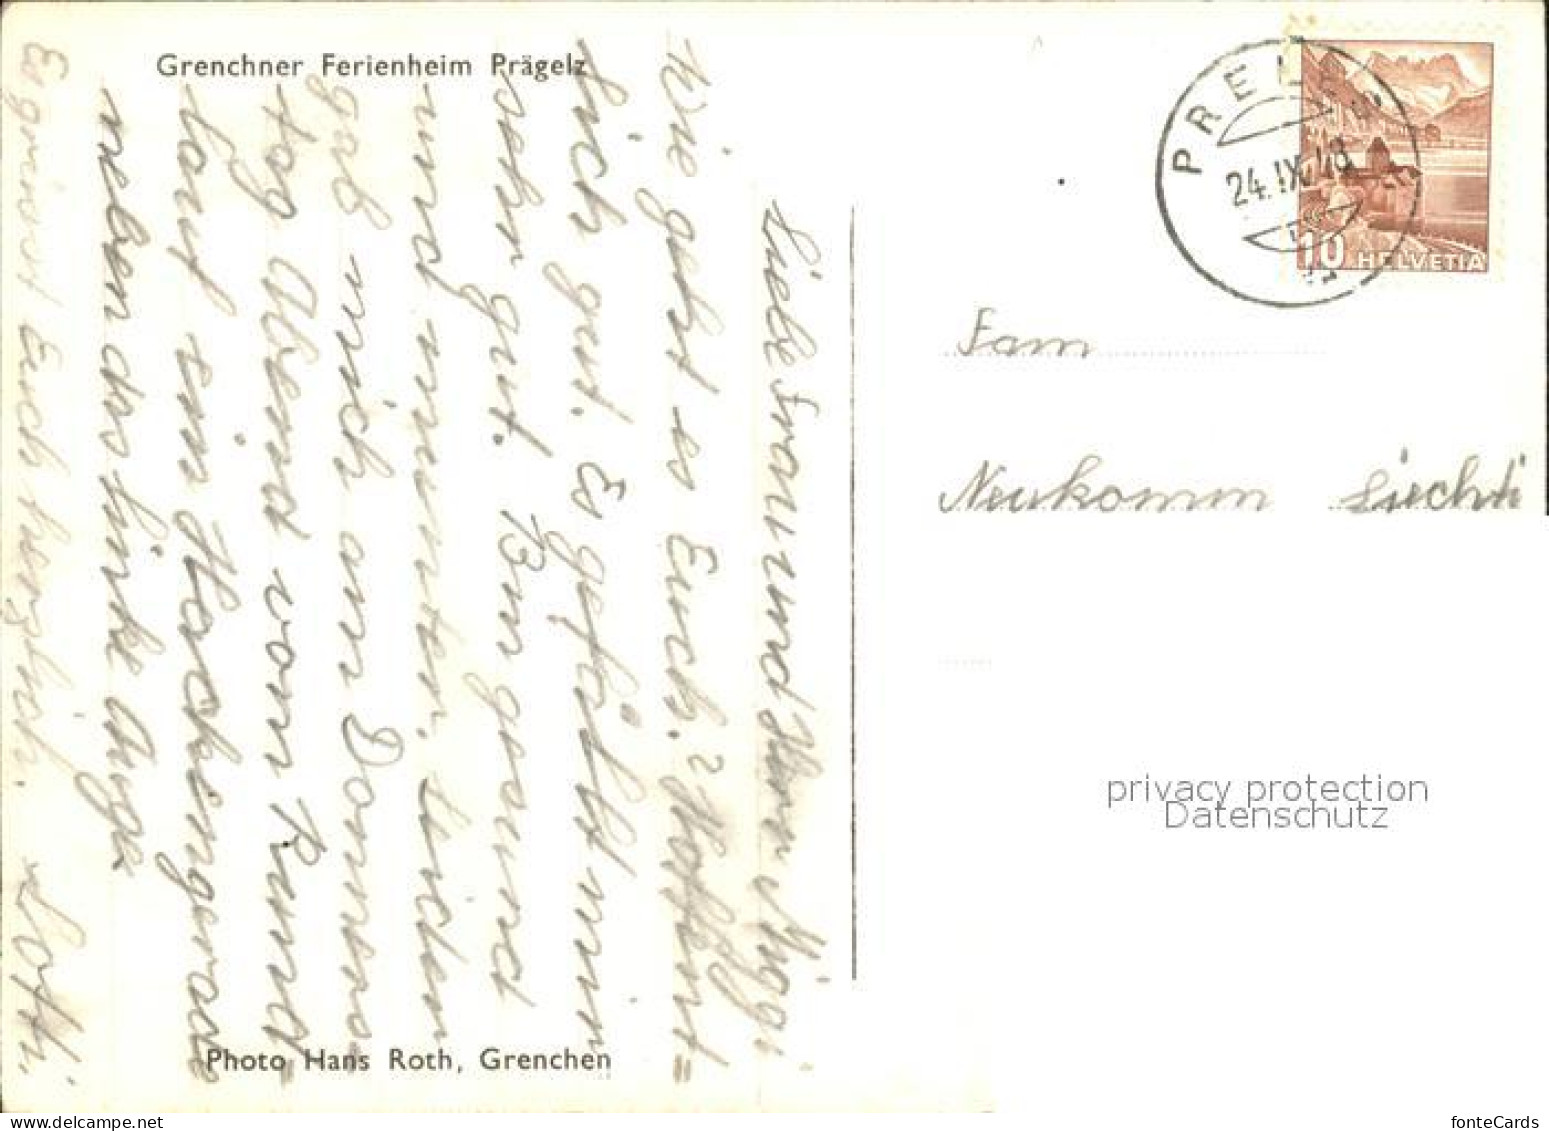 Grenchner Ferienheim Prägelz
Liebe Frau und Herr Müggi
Wie geht es Euch? Hoffent=
lich gut. Es gefällt mir
sehr gut. Bin gesund
und munter. Leider
gab mich am Donners=
tag Abend vom Rund=
lauf ein Hacken gerade
neben das linke Auge
Es grüsst Euch herzlich. Lotti
Photo Hans Roth, Grenchen
PRELES
24.IX.48
10 HELVETIA
Fam
Neukomm Liechti
privacy protection
Datenschutz
www.delcampe.net
fonteCards